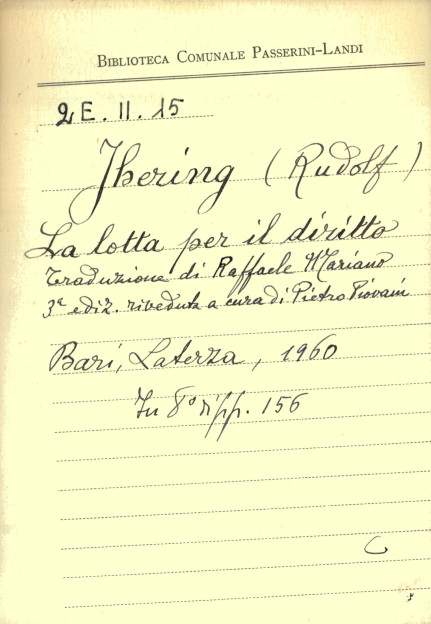 BIBLIOTECA COMUNALE PASSERINI-LANDI
2E. II. 15
Jhering (Rudolf)
La lotta per il diritto
Traduzione di Raffaele Mariano
3ª ediz. riveduta a cura di Pietro Piovani
Bari, Laterza, 1960
In 8° di pp. 156
C